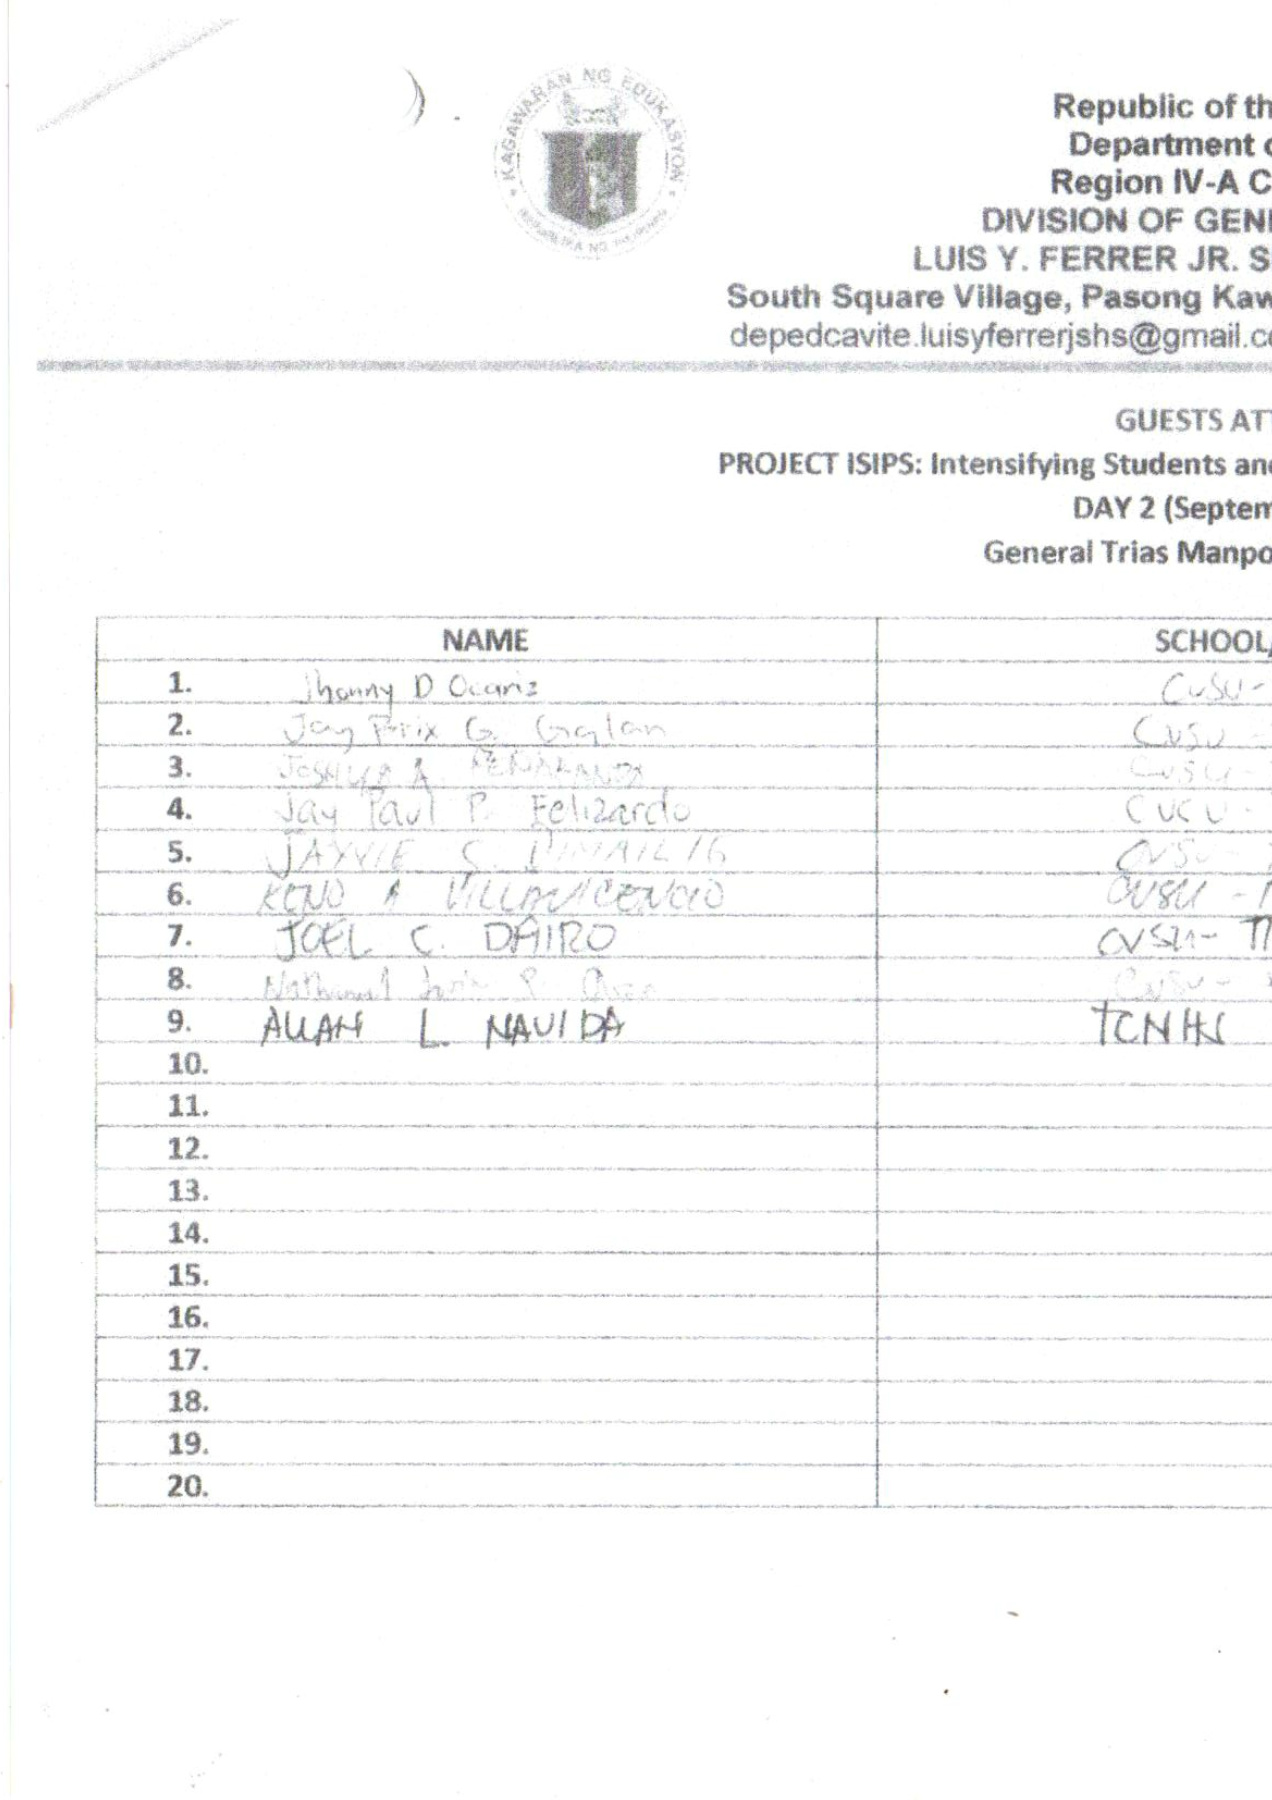 KAGAWARAN NG EDUKASYON
Republic of th
Department o
Region IV-A C
DIVISION OF GENE
LUIS Y. FERRER JR. S
South Square Village, Pasong Kaw
depedcavite.luisyferrerjshs@gmail.co
GUESTS ATT
PROJECT ISIPS: Intensifying Students and
DAY 2 (Septem
General Trias Manpo
NAME SCHOOL/
1. Jhonny D Ocariz CvSU-
2. Jay Frix G. Galan CVSU -
3. JOSHUA A. PEÑARANDA CvSU-
4. Jay Paul P. Felizardo CVCU -
5. JAYVIE S. DIMAILIG CVSU-
6. KENO A VILLAVICENCIO CVSU -
7. JOEL C. DAIRO CVSU- T
8. CvSU-
9. ALLAN L. NAVIDA TCNHS
10.
11.
12.
13.
14.
15.
16.
17.
18.
19.
20.